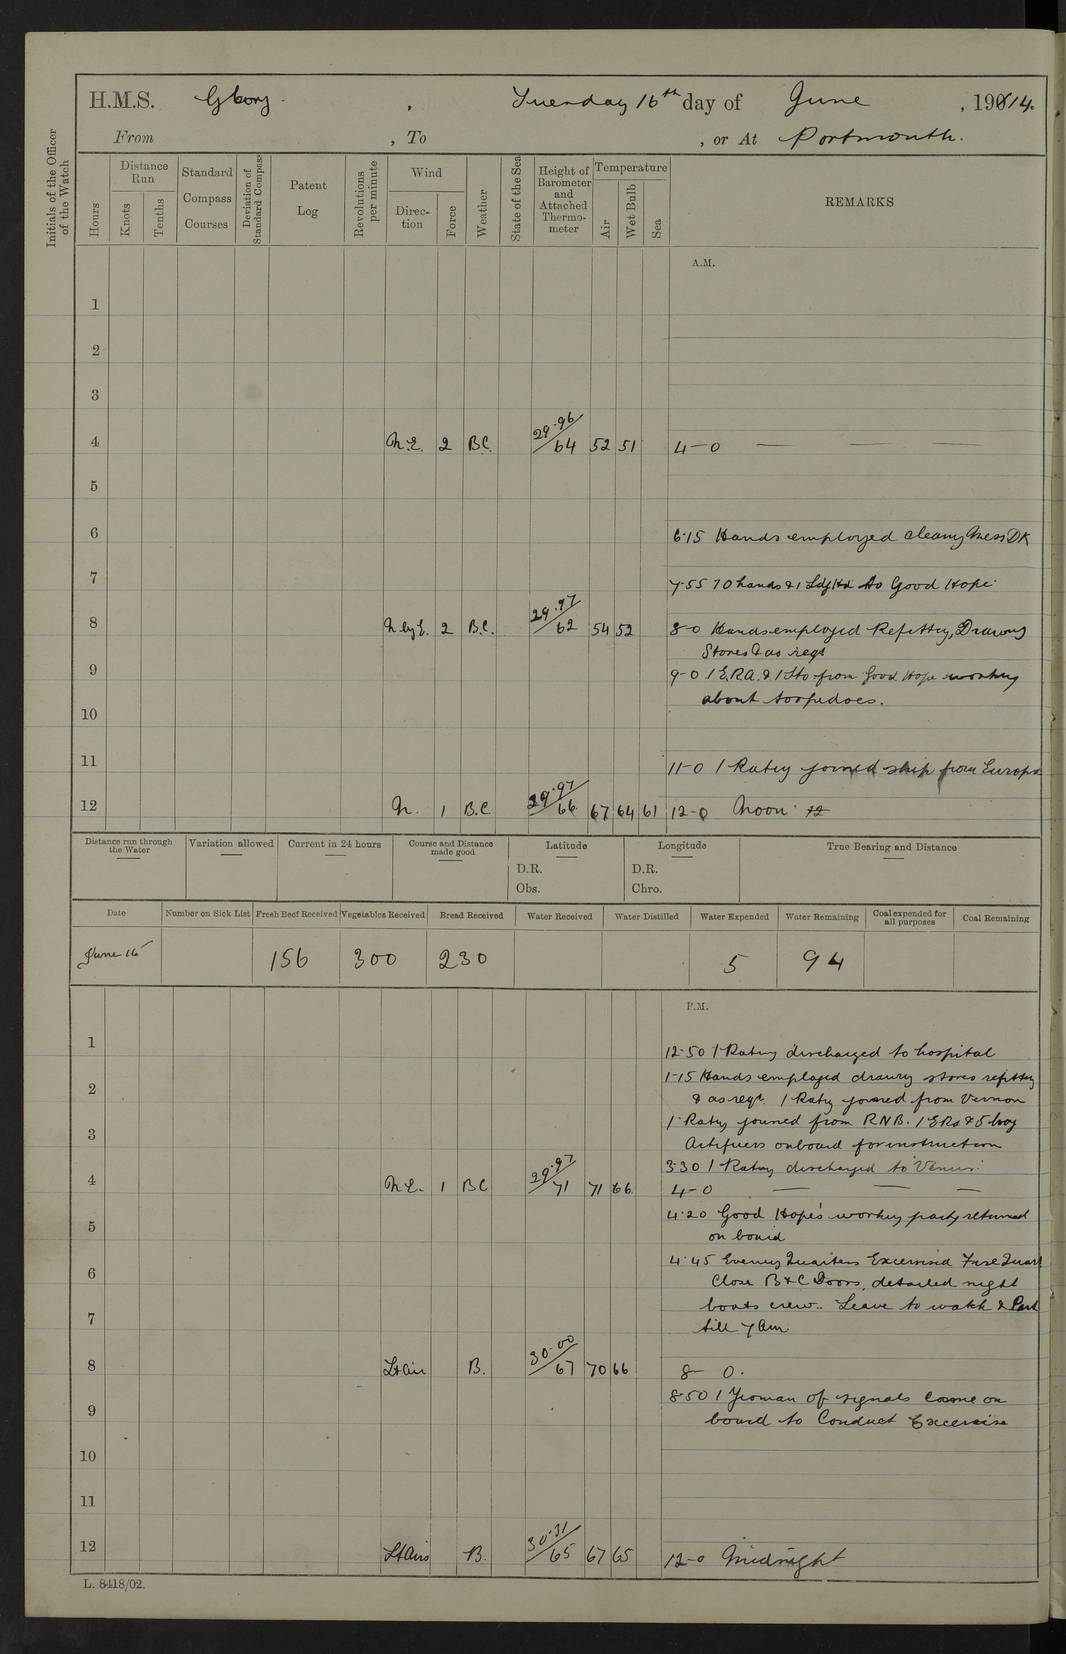 H.M.S. Glory , Tuesday 16th day of June , 1914.
From , To , or At Portsmouth.
Initials of the Officer of the Watch
Hours
Distance Run
Knots
Tenths
Standard Compass Courses
Deviation of Standard Compass
Patent Log
Revolutions per minute
Wind
Direction
Force
Weather
State of the Sea
Height of Barometer and Attached Thermometer
Temperature
Air
Wet Bulb
Sea
REMARKS
A.M.
1
2
3
4 N.E. 2 B.C. 29.96/64 52 51 4-0 — — —
5
6 6.15 Hands employed cleang Mess DK
7 7.55 70 hands & 1 Ldg Hd to Good Hope
8 N by E. 2 B.C. 29.97/62 54 52 8-0 Hands employed Refittg, Drawing
Stores & as reqd
9 9-0 1 E.R.A. & 1 Sto from Good Hope working
about torpedoes.
10
11 11-0 1 Ratng joined ship from Europa
12 N. 1 B.C. 29.97/66 67 64 61 12-0 Noon
Distance run through the Water
Variation allowed
Current in 24 hours
Course and Distance made good
Latitude
D.R.
Obs.
Longitude
D.R.
Chro.
True Bearing and Distance
Date Number on Sick List Fresh Beef Received Vegetables Received Bread Received Water Received Water Distilled Water Expended Water Remaining Coal expended for all purposes Coal Remaining
June 16 156 300 230 5 94
P.M.
1 12.50 1 Ratng discharged to hospital
1-15 Hands employed drawg stores refittg
2 & as reqd. 1 Ratg joined from Vernon
1 Ratg joined from RNB. 1 ERA & 5 boy
3 Artificers onboard for instruction
3.30 1 Ratng discharged to Venus
4 N.E. 1 BC 29.97/71 71 66 4-0 — — —
4.20 Good Hope's workg party returned
5 on board
4.45 Evening Quarters Excercised Fire Quart
6 Close B & C Doors, detailed night
boats crew.. Leave to watch & Part
7 till 7 am
8 Lt Air B. 30.00/67 70 66 8- 0.
8.50 1 Yeoman of signals came on
9 board to Conduct Excercise
10
11
12 Lt Airs B. 30.31/65 67 65 12-0 Midnight
L. 8418/02.